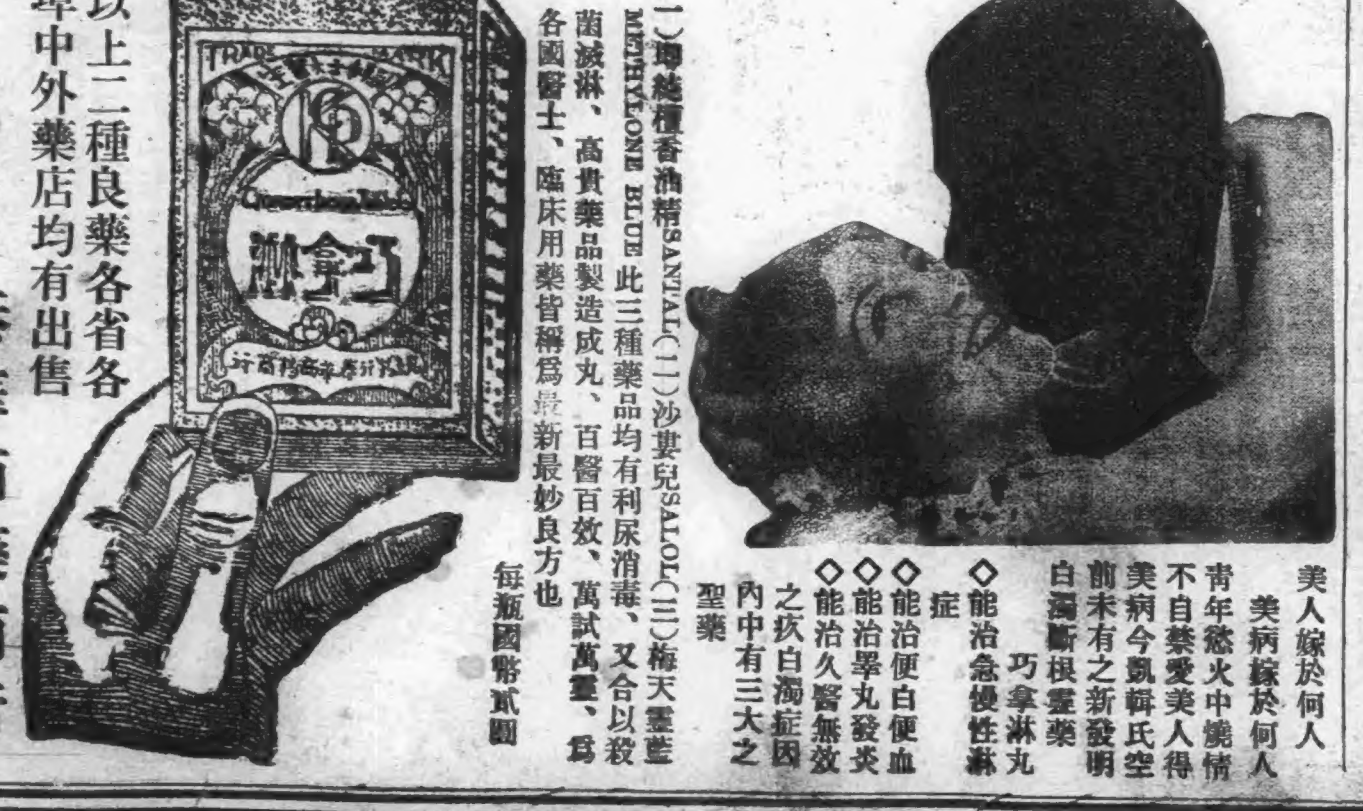 美人嫁於何人
美病嫁於何人
青年慾火中燒情
不自禁愛美人得
美病今凱輯氏空
前未有之新發明
白濁斷根靈藥
巧拿淋丸
◇能治急慢性淋
症
◇能治便白便血
◇能治睪丸發炎
◇能治久醫無效
之疚白濁症因
內中有三大之
聖藥
檀香油精SANTAL(二)沙婁兒SALOL(三)梅天靈藍
METHYLONE BLUE 此三種藥品均有利尿消毒、又合以殺
菌滅淋、高貴藥品製造成丸、百醫百效、萬試萬靈、爲
各國醫士、臨床用藥皆稱爲最新最妙良方也
每瓶國幣貳圓
TRADE MARK
巧拿淋
以上二種良藥各省各
埠中外藥店均有出售